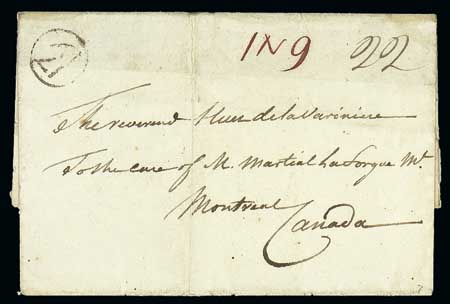 1N9 22
The reverend Huet de la Variniere
To the care of M. Martial La forgue Mt
Montreal
Canada